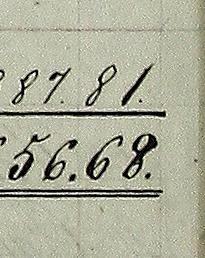 87.81.
56.68.